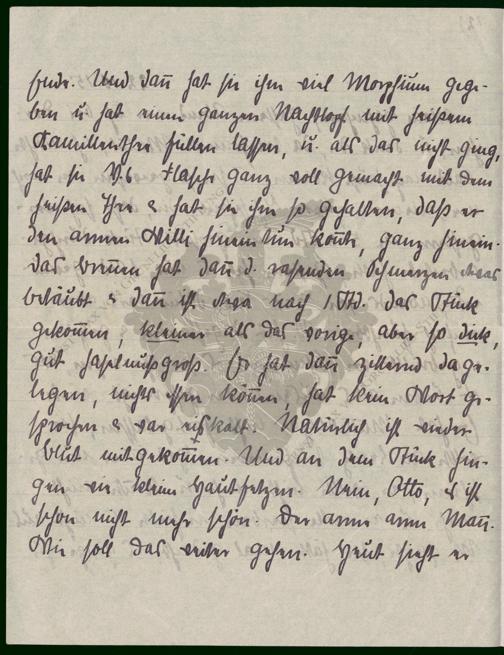 Ende. Und dann hat sie ihm viel Morphium gege-
ben u. hat einen ganzen Nachttopf mit heißem
Kamillenthee füllen lassen, u. als das nicht ging,
hat sie Flasche ganz voll gemacht mit dem
heißen Thee & hat sie ihm so gehalten, daß er
den armen Willi hineintun konnte, ganz hinein.
das brennen hat dann d. rasenden Schmerzen etwas
betäubt & dann ist etwa nach 1 Std. das Stück
gekommen, kleiner als das vorige, aber so dick,
gut haselnußgroß. Er hat dann zitternd dage-
legen, nichts essen können, hat kein Wort ge-
sprochen & war eiskalt. Natürlich ist wieder
blut mitgekommen. Und an dem Stück hin-
gen wie kleine Hautfetzen. Nein, Otto, es ist
schon nicht mehr schön. Der arme arme Mann.
Wie soll das weiter gehen. Heut sieht er